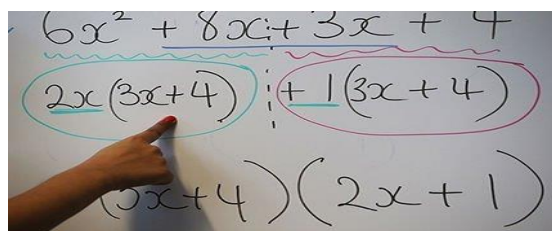 6x² + 8x + 3x + 4
2x(3x+4) + 1(3x+4)
(3x+4)(2x+1)